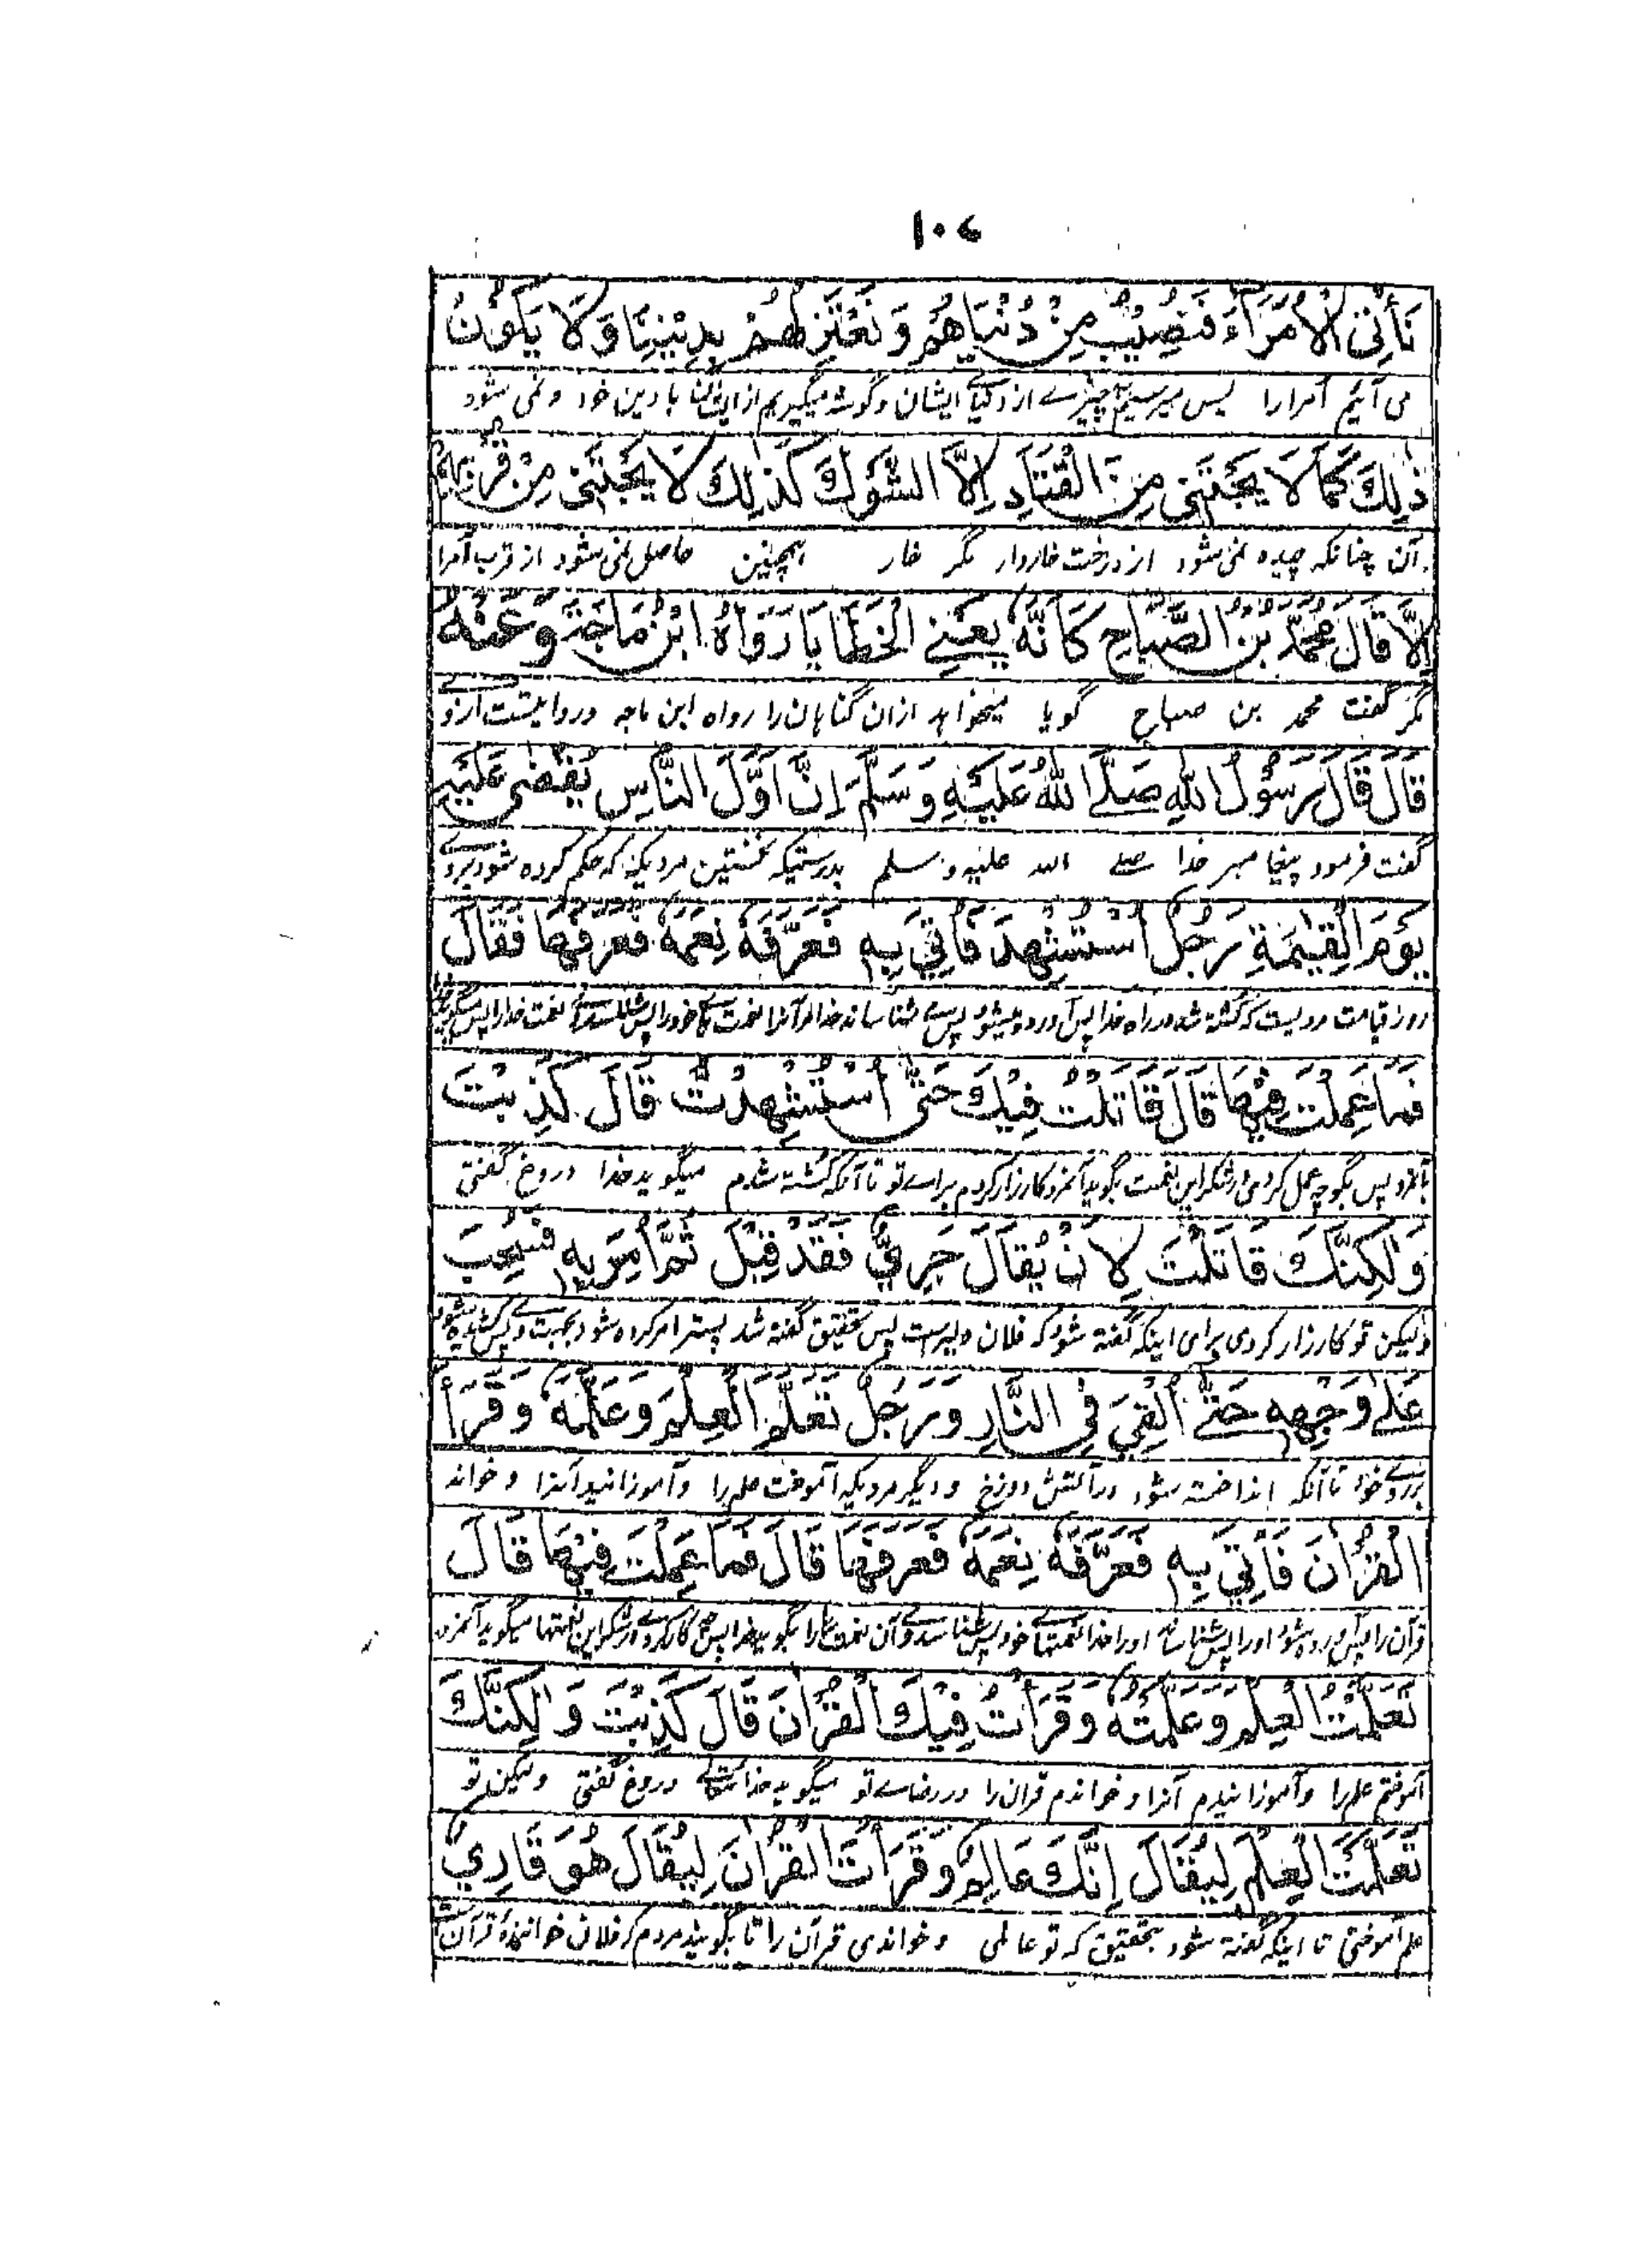 ١٠٤
نَأْتِي الْأُمَرَاءَ فَنُصِيبُ مِنْ دُنْيَاهُمْ وَنَعْتَزِلُهُمْ بِدِيْنِنَا وَلَا يَكُوْنُ
می آئیم امرا را پس میرسیم چیزے از دنیائے ایشان و گوشه میگیریم از ایشان با دین خود و نمی شود
ذٰلِكَ كَمَا لَا يُجْتَنٰى مِنَ الْقَتَادِ اِلَّا الشَّوْكَ كَذٰلِكَ لَا يُجْتَنٰى مِنْ قُرْبِهِمْ
آن چنانکه چیده نمی شود از درخت خاردار مگر خار همچنین حاصل نمی شود از قرب امرا
اِلَّا قَالَ مُحَمَّدُ بْنُ الصَّبَّاحِ كَاَنَّهٗ يَعْنِي الْخَطَايَا رَوَاهُ ابْنُ مَاجَةَ وَعَنْهُ
مگر گفت محمد بن صباح گویا میخواهد ازان گناهان را رواه ابن ماجه و روایتست از وے
قَالَ قَالَ رَسُوْلُ اللّٰهِ صَلَّى اللّٰهُ عَلَيْهِ وَسَلَّمَ اِنَّ اَوَّلَ النَّاسِ يُقْضٰى عَلَيْهِ
گفت فرمود پیغامبر خدا صلے الله علیه وسلم بدرستیکه نخستین مردیکه که حکم کرده شود بروے
يَوْمَ الْقِيٰمَةِ رَجُلٌ اُسْتُشْهِدَ فَاُتِيَ بِهٖ فَعَرَّفَهٗ نِعَمَهٗ فَعَرَفَهَا فَقَالَ
روز قیامت مردیست که کشته شد در راه خدا پس آورده میشود پس مے شناساند خدا مر آنرا نعمت خود را پس
فَمَا عَمِلْتَ فِيْهَا قَالَ قَاتَلْتُ فِيْكَ حَتّٰى اُسْتُشْهِدْتُ قَالَ كَذَبْتَ
پس بگو چه عمل کردی در شکر این نعمت بگوید آنمرد کارزار کردم براے تو تا آنکه کشته شدم میگوید خدا دروغ گفتی
وَلٰكِنَّكَ قَاتَلْتَ لِاَنْ يُّقَالَ جَرِيٌّ فَقَدْ قِيْلَ ثُمَّ اُمِرَ بِهٖ فَسُحِبَ
ولیکن تو کارزار کردی برای اینکه گفته شود که فلان دلیرست پس تحقیق گفته شد پستر امر کرده شود بجهت وے پس کشیده شود
عَلٰى وَجْهِهٖ حَتّٰى اُلْقِيَ فِي النَّارِ وَرَجُلٌ تَعَلَّمَ الْعِلْمَ وَعَلَّمَهٗ وَقَرَأَ
بر روے خود تا آنکه انداخته شود در آتش دوزخ و دیگر مردیکه آموخت علم را و آموزانید آنرا و خواند
الْقُرْاٰنَ فَاُتِيَ بِهٖ فَعَرَّفَهٗ نِعَمَهٗ فَعَرَفَهَا قَالَ فَمَا عَمِلْتَ فِيْهَا قَالَ
قرآن را پس آورده شود او را پس شناساند او را خدا نعمتهاے خود پس بشناسد وے آن نعمتها را در شکر این نعمتها میگوید آنمرد
تَعَلَّمْتُ الْعِلْمَ وَعَلَّمْتُهٗ وَقَرَأْتُ فِيْكَ الْقُرْاٰنَ قَالَ كَذَبْتَ وَلٰكِنَّكَ
آموختم علم را و آموزانیدم آنرا و خواندم قران را در رضاے تو میگوید خدا تعالے دروغ گفتی ولیکن تو
تَعَلَّمْتَ الْعِلْمَ لِيُقَالَ اِنَّكَ عَالِمٌ وَقَرَأْتَ الْقُرْاٰنَ لِيُقَالَ هُوَ قَارِئٌ
علم آموختی تا اینکه گفته شود بتحقیق که تو عالمی و خواندی قرآن را تا بگویند مردم که فلان خوانندۀ قرآن ست